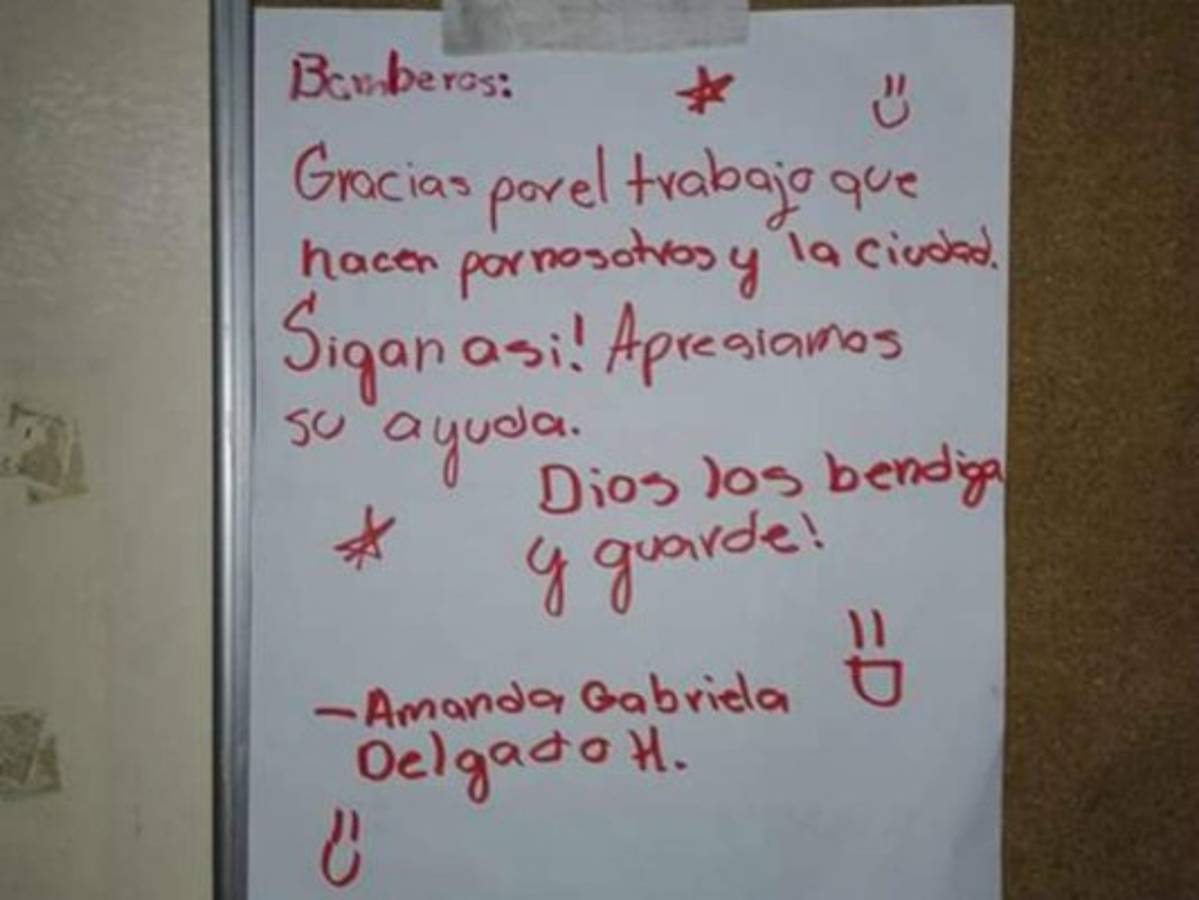 Bomberos:
Gracias por el trabajo que
hacen por nosotros y la ciudad.
Sigan asi! Apresiamos
su ayuda.
Dios los bendiga
y guarde!
- Amanda Gabriela
Delgado H.